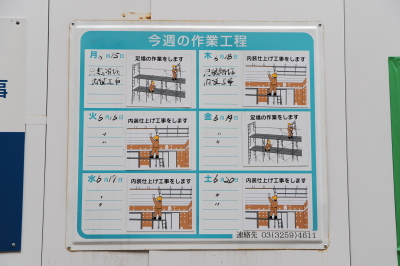 今週の作業工程
月 6月15日
足場の作業をします
内装工事
木 6月18日
内装仕上げ工事をします
内装工事
火 6月16日
内装仕上げ工事をします
〃
〃
金 6月19日
足場の作業をします
〃
〃
水 6月17日
内装仕上げ工事をします
〃
〃
土 6月20日
内装仕上げ工事をします
〃
〃
連絡先 03(3259)4611
事